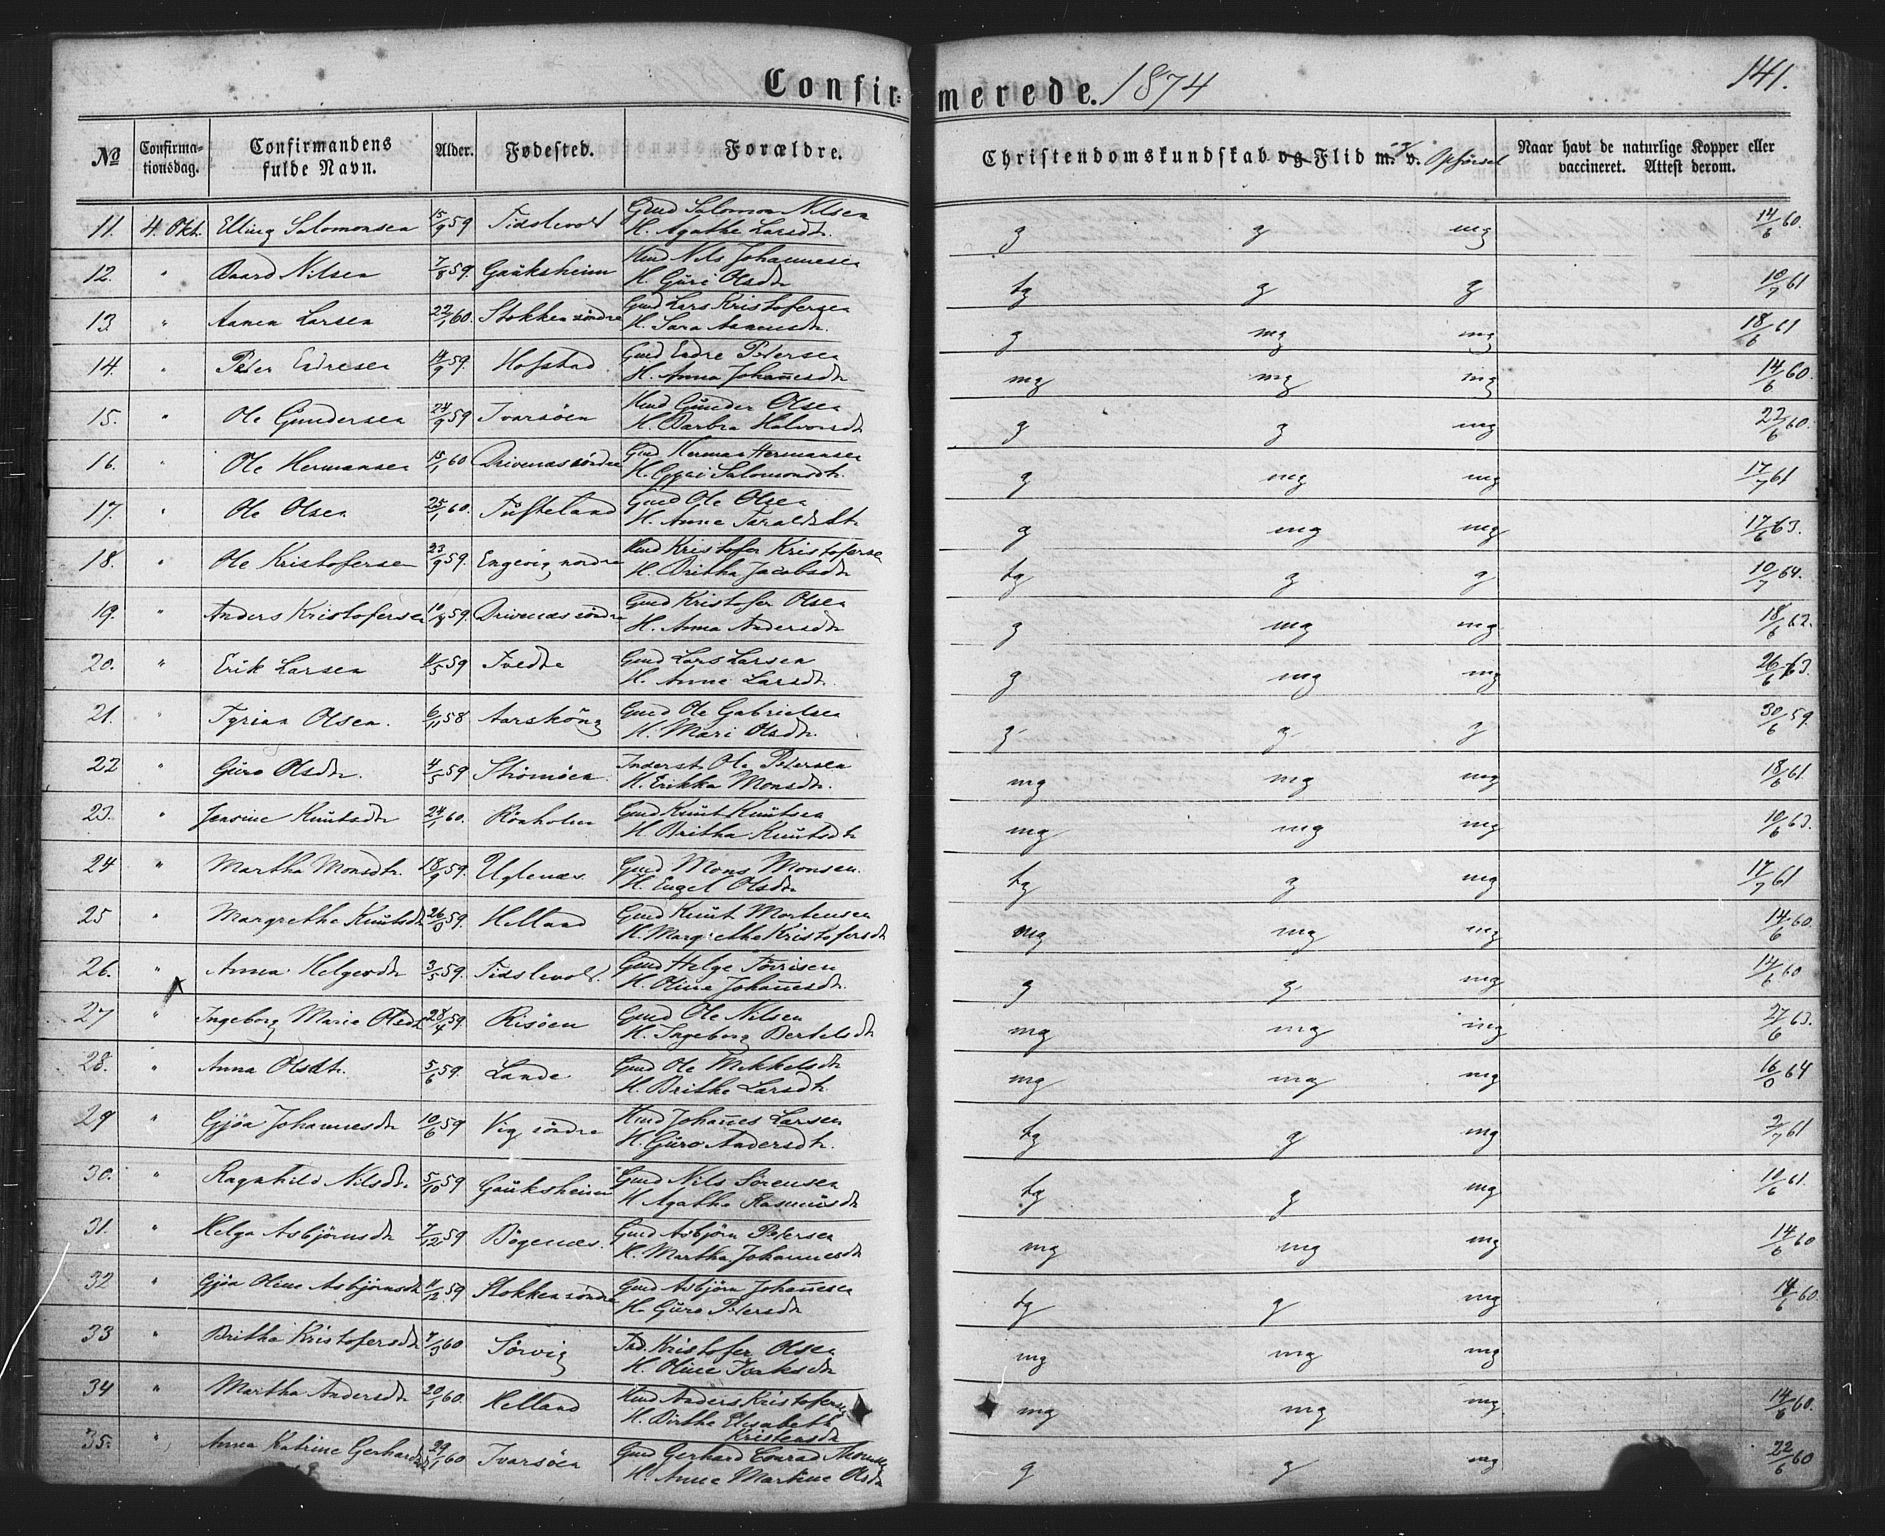 Confirmerede. 1874
141.
No
Confirmationsdag.
Confirmandens fulde Navn.
Alder.
Fødested.
Forældre.
Christendomskundskab og Flid m. v. og Opførsel
Naar havt de naturlige Kopper eller vaccineret. Attest derom.
11. 4. Okt. Elling Salomonsen 15/9 59 Tidslevold Gmd Salomon Nilsen H. Agathe Larsdtr. g g mg 14/6 60.
12. " Baard Nilsen 7/8 59. Gauksheim Hmd Nils Johannesen H. Guri Olsdtr tg g g 10/7 61
13 " Aamen Larsen 22/1 60. Stokken söndre Gmd Lars Kristofersen H. Sara Aamensdtr. g mg mg 18/6 61
14. " Peter Endresen 14/9 59. Hofstad Gmd Endre Petersen H. Anna Johañesdtr mg mg mg 14/6 60.
15. " Ole Gundersen 24/9 59 Ivarsöen Hmd Gunder Olsen H. Barbra Halvorsdtr g g mg 22/6 60.
16. " Ole Hermansen 15/1 60 Drivenes söndre Gmd Herman Hermansen H. Salomonsdtr. g mg mg 17/7 61
17. " Ole Olsen 25/1 60. Tufteland Gmd Ole Olsen H. Anne Taraldsdtr g mg mg 17/6 63.
18. " Ole Kristofersen 23/9 59. Engevig nordre Hmd Kristofer Kristofersen H. Britha Jacobsdtr tg g g 10/7 64.
19. " Anders Kristofersen 10/8 59. Drivenes söndre Gmd Kristofer Olsen H. Anna Andersdtr g mg mg 18/6 62.
20. " Erik Larsen 11/5 59 Tvedte Gmd Lars Larsen H. Anne Larsdtr. g mg mg 26/6 63.
21. " Tyrian Olsen. 6/11 58 Aarsköug Gmd Ole Gabrielsen H. Mari Olsdtr. g g g 30/6 59.
22 " Guro Olsdtr. 4/5 59 Strömöen Inderst Ole Petersen H. Erikka Monsdtr. mg mg mg 18/6 61.
23. " Jensine Knutsdtr 24/1 60. Rönholm Gmd Knut Knutsen H Britha Knutsdtr mg mg mg 10/6 63.
24 " Martha Monsdtr. 18/9 59. Uglenæs. Gmd Mons Monsen. H. Engel Olsdtr tg g mg 17/7 61
25 " Margrethe Knutsdtr 26/0 59. Helland Gmd Knut Mortensen H. Margrethe Kristofersdtr mg mg mg 14/6 60.
26. " Anna Helgesdtr 3/5 59. Tidslevold. Gmd Helge Torrisen H. Oline Johañesdtr. g g mg 14/6 60
27 " Ingeborg Marie Olsdtr 28/4 59. Risöen Gmd Ole Nilsen H. Ingeborg Bertelsdtr mg mg mg 27/6 63.
28. " Anna Olsdtr. 5/6 59. Lande Gmd Ole Mikkelsdtr H. Brithe Larsdtr. mg mg mg 16/0 64
29 " Gjöa Johannesdtr 10/6 59 Vig söndre Hmd Johañes Larsen H. Guro Andersdtr. tg g mg 2/7 61
30. " Ragnhild Nilsdtr 5/10 59 Gauksheim Gmd Nils Sörensen H Agatha Rasmusdtr tg g mg 10/6 61.
31. " Helga Asbjörnsdtr 7/12 59 Bögenæs. Gmd Asbjörn Petersen H. Martha Johannesdtr mg mg mg 14/6 60
32 " Gjöa Oline Asbjörnsdtr 11/12 59 Stokken söndre Gmd Asbjörn Johañesen H. Guro Petersdtr tg g mg 14/6 60.
33 " Britha Kristofersdtr 4/3 60 Sörvig Kristofer Olsen H. Oline mg mg mg
34 " Martha Andersdtr 20/1 60. Helland Hmd Anders Kristofersen H. Birthe Elisabeth Kristensdtr mg mg mg 14/6 60.
35. " Anna Katrine Gerhardsdtr 29/1 60 Ivarsöen Gmd Gerhard Conrad H. Anne Martine Olsdtr g g mg 22/6 60